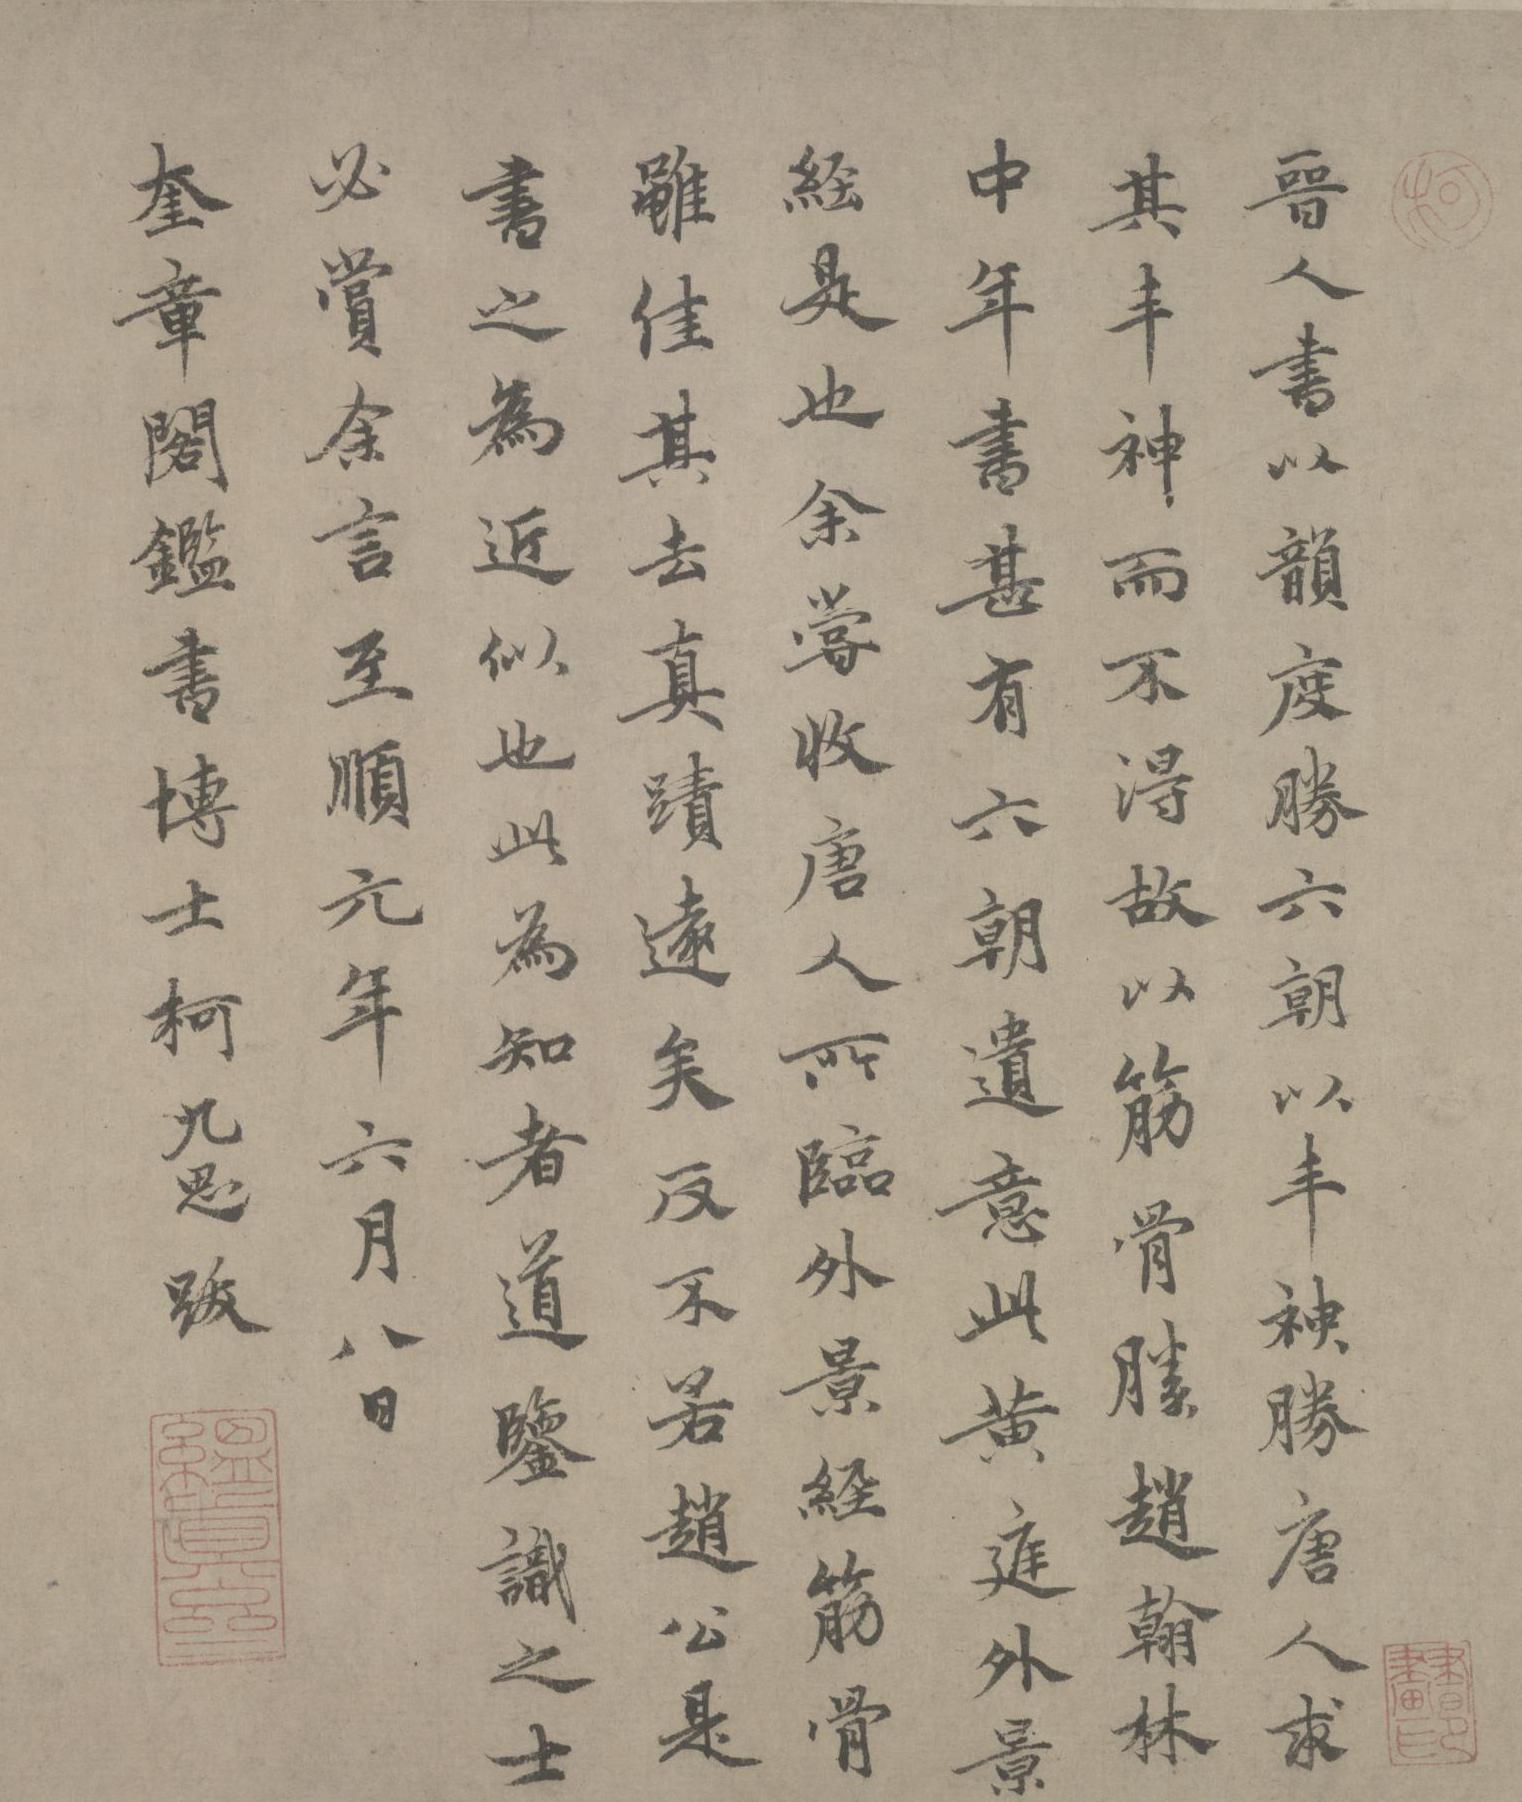 晉人書以韻度勝六朝以丰神勝唐人求
其丰神而不得故以筋骨勝趙翰林
中年書甚有六朝遺意此黃庭外景
経是也余嘗收唐人所臨外景経筋骨
雖佳其去真蹟遠矣反不若趙公是
書之為近似也此為知者道鑒識之士
必賞余言至順元年六月八日
奎章閣鑑書博士柯九思跋
縕真齋
柯
書畫印